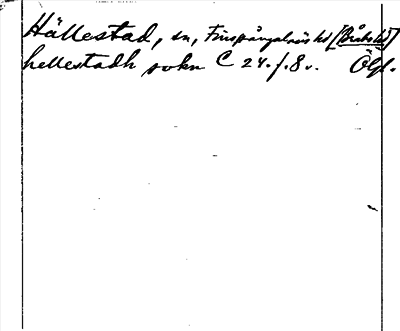 Hällestad, sn, Finspångaläns hd [Bråbo hd]
hellestadh sokn C 24. f. 8 v. Ögl.